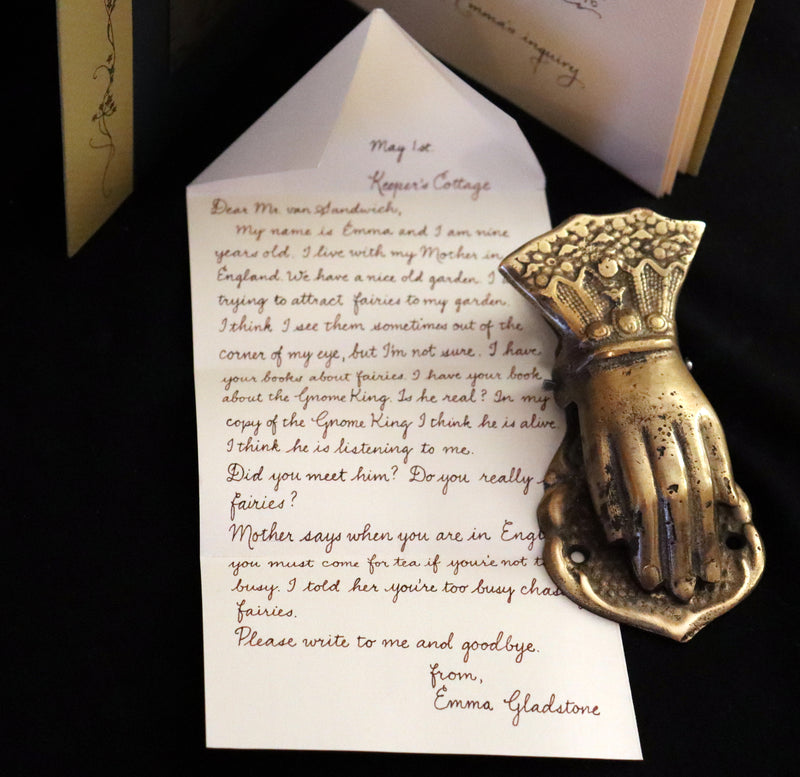 Emma's inquiry
May 1st
Keeper's Cottage
Dear Mr. van Sandwich,
My name is Emma and I am nine
years old. I live with my Mother in
England. We have a nice old garden. I
trying to attract fairies to my garden.
I think I see them sometimes out of the
corner of my eye, but I'm not sure. I have
your books about fairies. I have your book
about the Gnome King. Is he real? In my
copy of the Gnome King I think he is alive.
I think he is listening to me.
Did you meet him? Do you really
fairies?
Mother says when you are in
you must come for tea if your'e not
busy. I told her you're too busy
fairies.
Please write to me and goodbye.
from,
Emma Gladstone